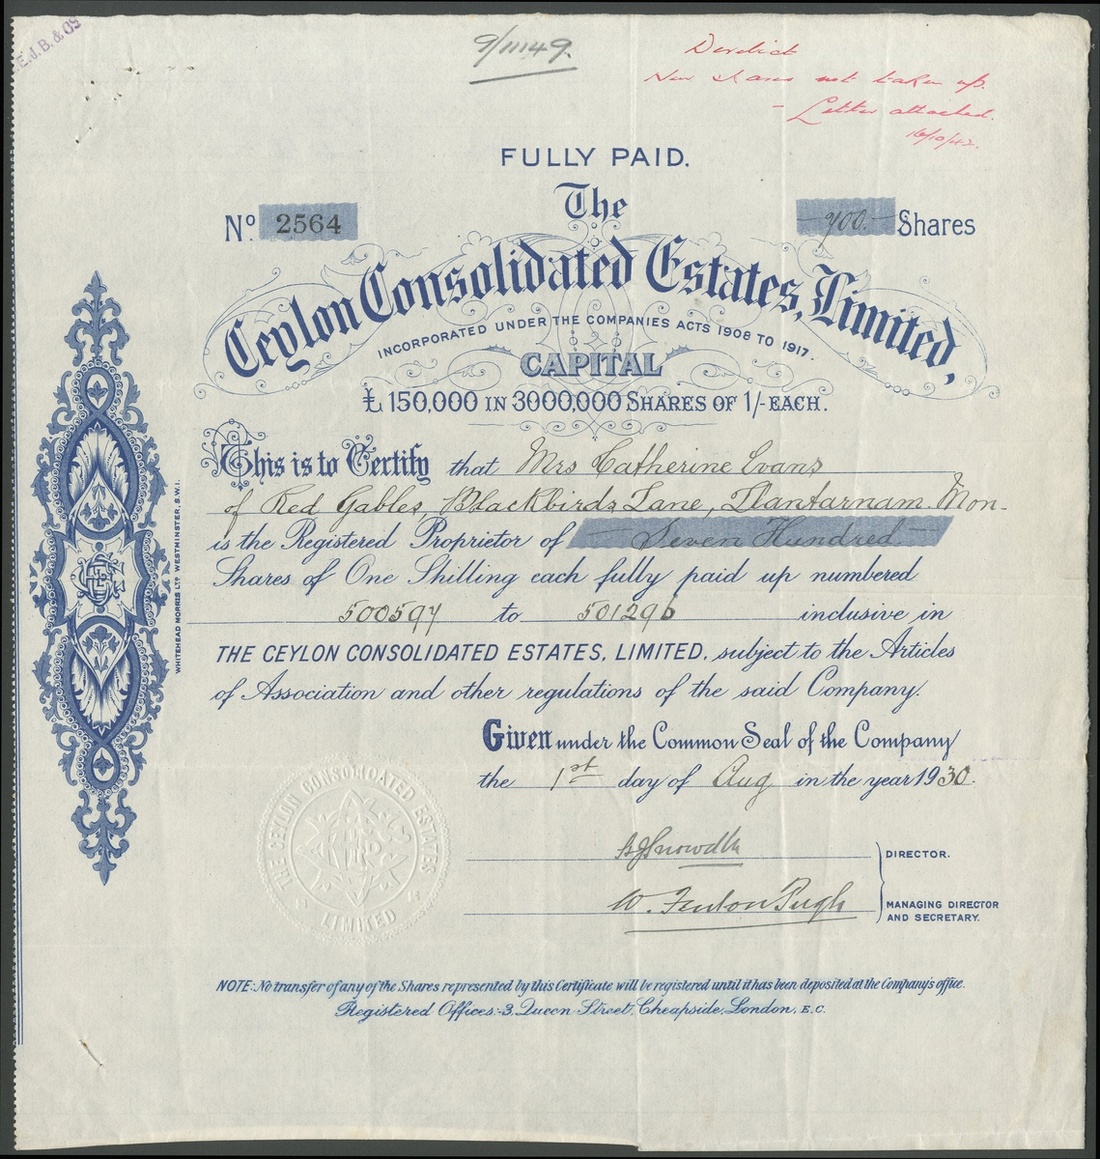 E.J.B. & Co
9/11149.
Derelict
New shares not taken up.
- Letter attached.
16/10/42.
FULLY PAID.
The
No. 2564
700. Shares
Ceylon Consolidated Estates, Limited,
INCORPORATED UNDER THE COMPANIES ACTS 1908 TO 1917.
CAPITAL
£150,000 IN 3000,000 SHARES OF 1/- EACH.
This is to Certify that Mrs Catherine Evans
of Red Gables, Blackbirds Lane, Llantarnam. Mon.
is the Registered Proprietor of Seven Hundred
Shares of One Shilling each fully paid up numbered
500597 to 501296 inclusive in
THE CEYLON CONSOLIDATED ESTATES, LIMITED, subject to the Articles
of Association and other regulations of the said Company.
Given under the Common Seal of the Company
the 1st day of Aug in the year 1930.
DIRECTOR.
W. Fenton Pugh
MANAGING DIRECTOR
AND SECRETARY.
THE CEYLON CONSOLIDATED ESTATES
LIMITED
NOTE: No transfer of any of the Shares represented by this Certificate will be registered until it has been deposited at the Company's office.
Registered Offices:-3, Queen Street, Cheapside, London, E.C.
WHITEHEAD MORRIS LTD WESTMINSTER, S.W.1.